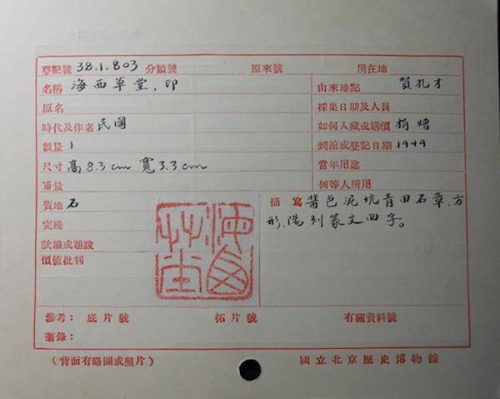 登記號 38.1.803 分類號 原來號 所在地
名稱 海西草堂，印 由來地點 賀孔才
原名 採集日期及人員
時代及作者 民國 如何入藏或購價 捐贈
數量 1 到館或登記日期 1949
尺寸 高8.3cm 寬3.3cm 當年用途
重量 何等人所用
質地 石 描寫 醬色泥坑青田石章，方
完殘 形，陽刻篆文四字。
款識或題跋
價值批判
海西草堂
參考： 底片號 拓片號 有關資料號
著錄：
（背面有略圖或照片） 國立北京歷史博物館